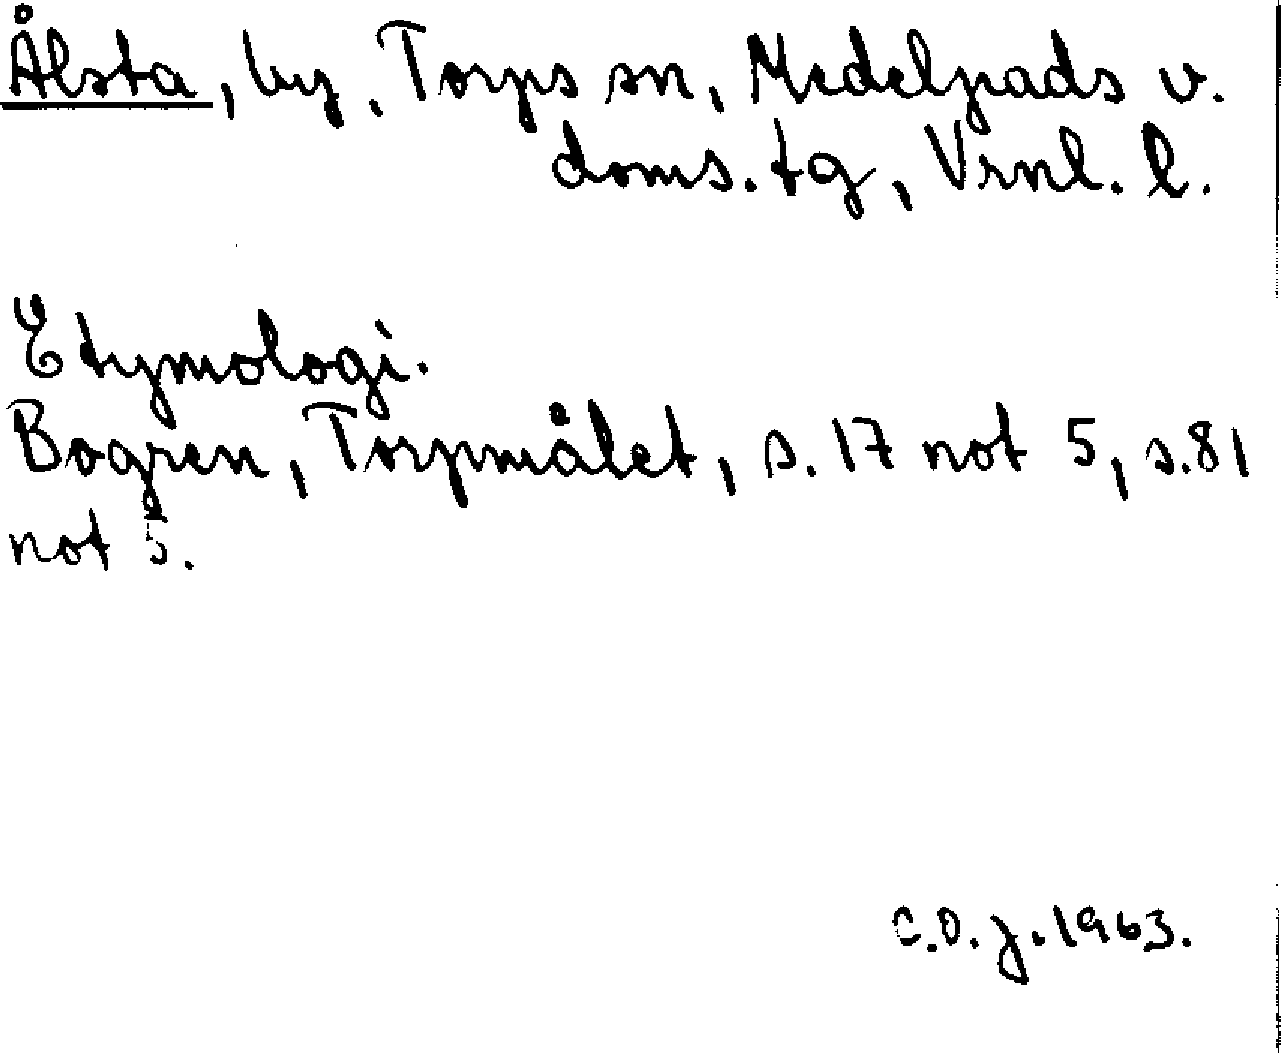 Ålsta, by, Torps sn, Medelpads v.
doms. tg, Vrnl. l.
Etymologi.
Bogren, Torpmålet, s. 17 not 5, s. 81
not 5.
C.O.J. 1963.